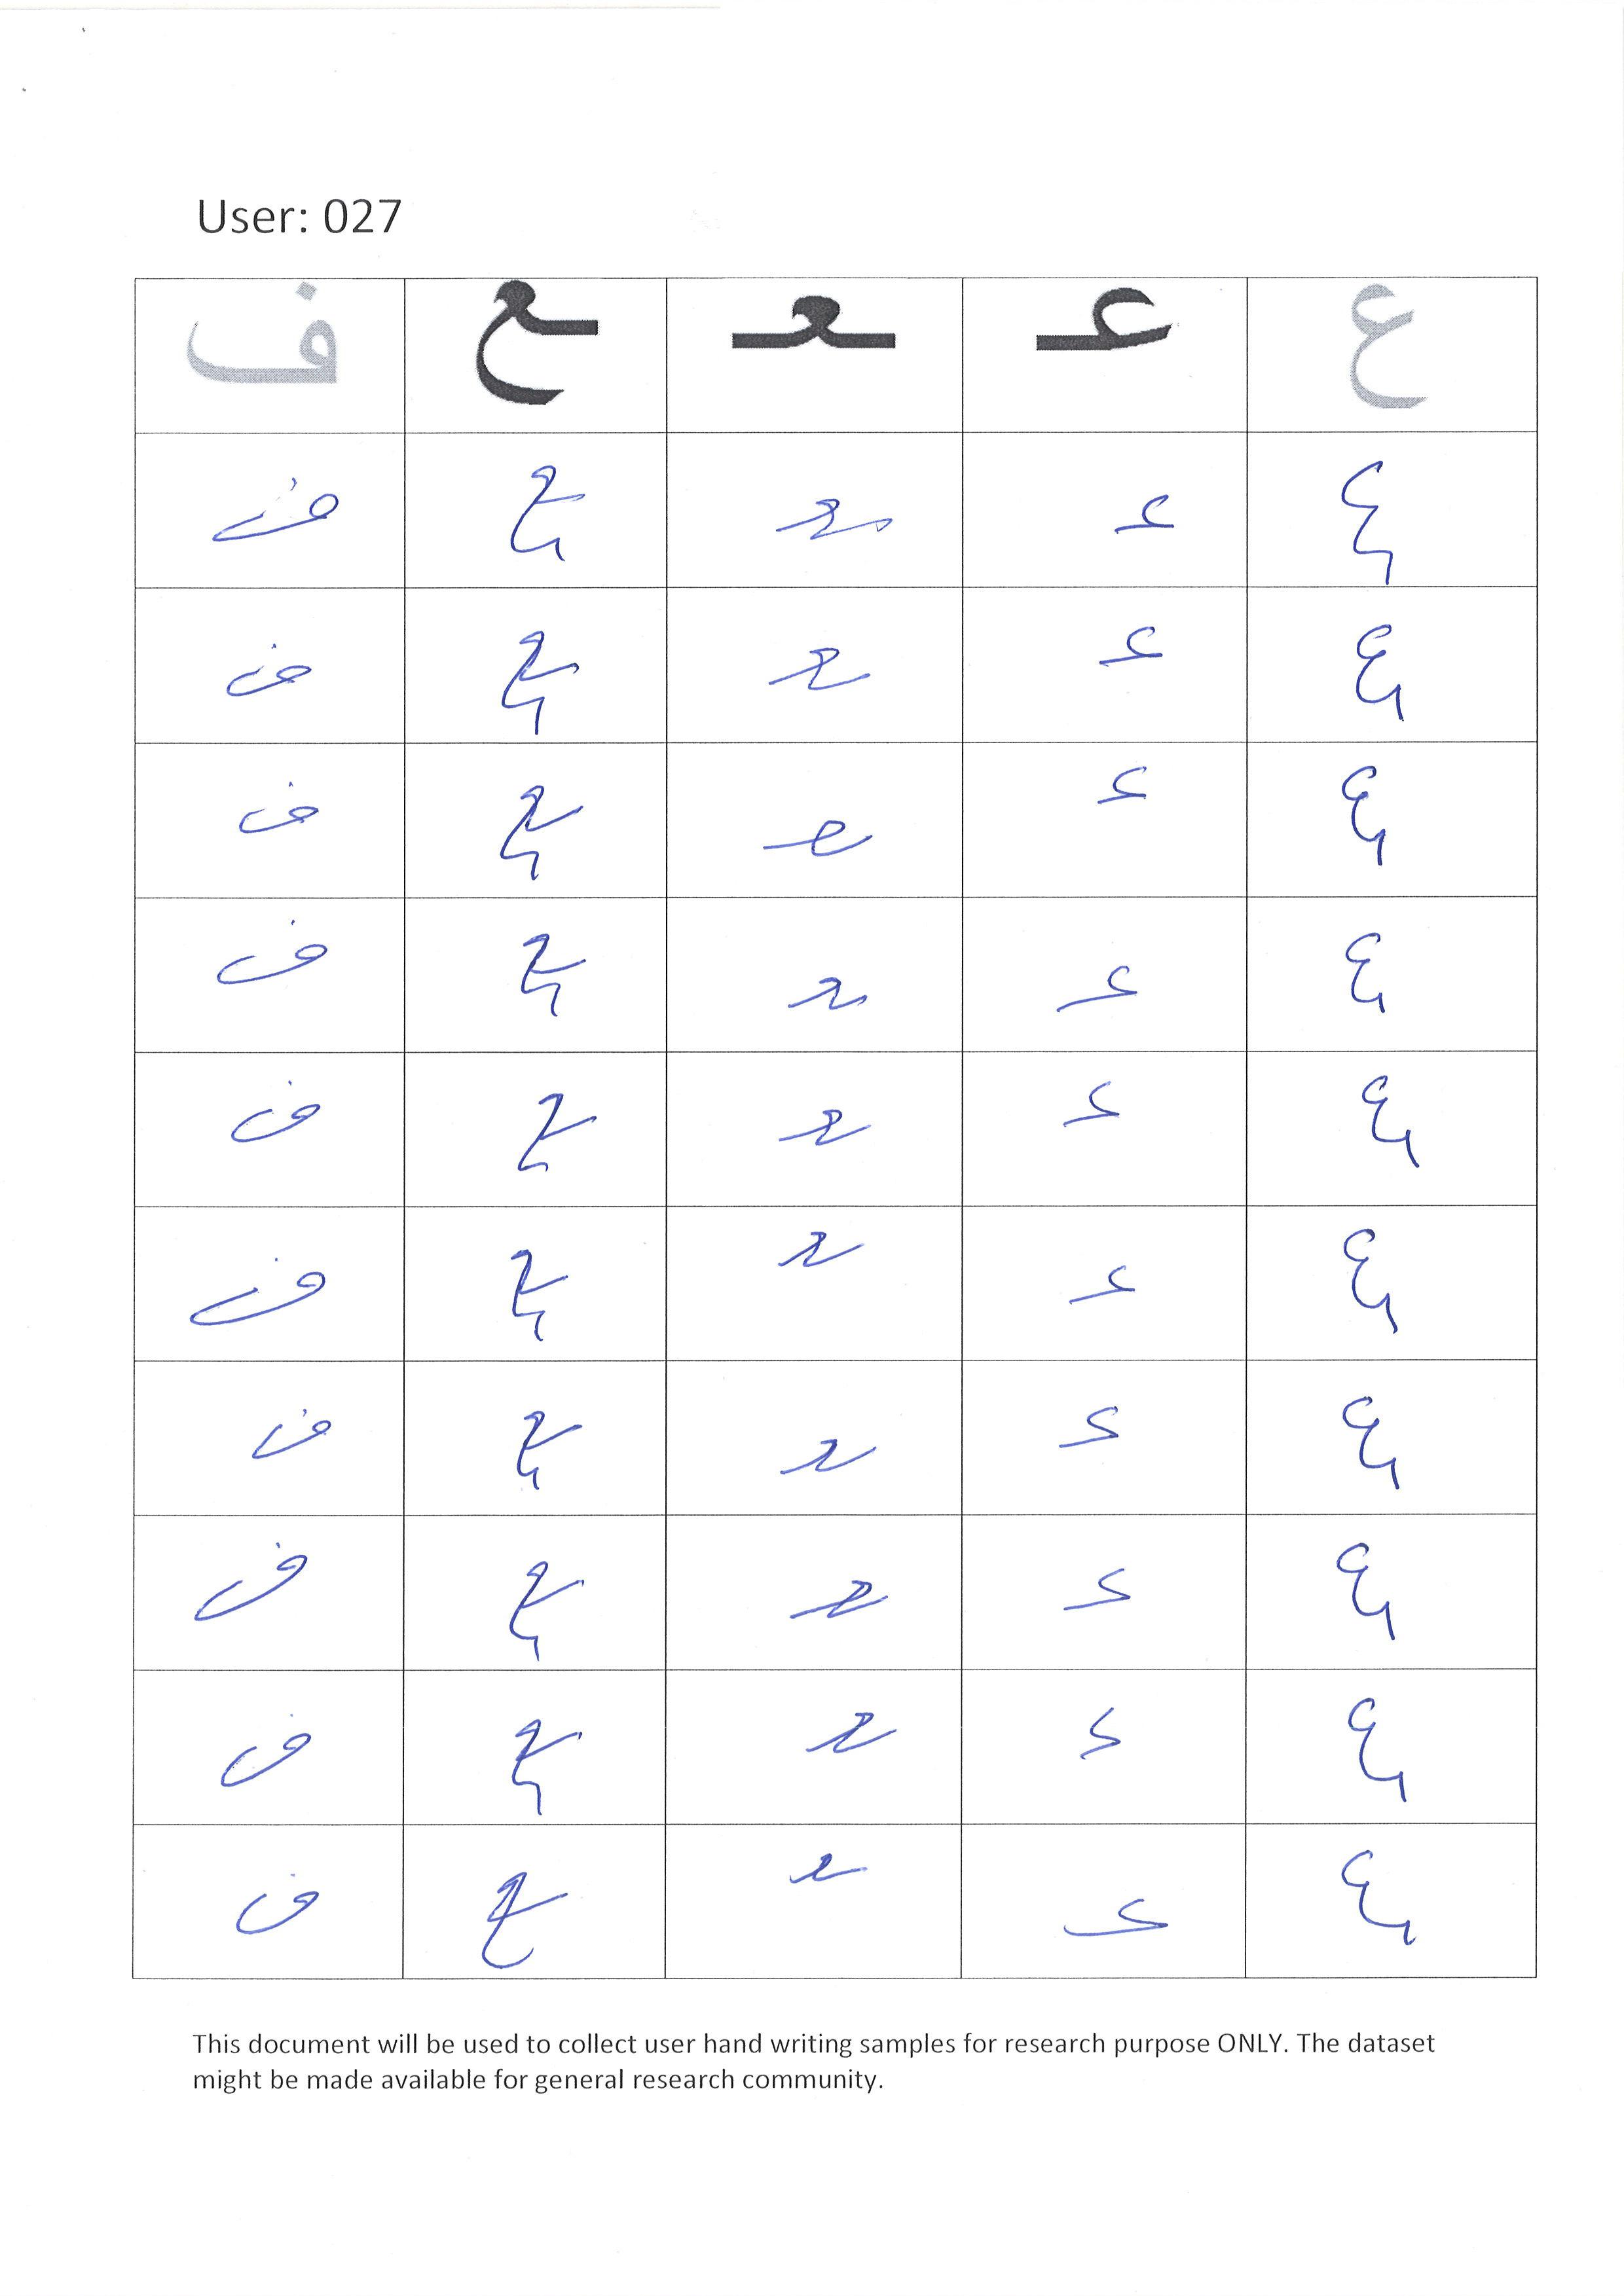 User: 027
ع عـ ـعـ ـع ف
ع عـ ـعـ ـع ف
ع عـ ـعـ ـع ف
ع عـ ـعـ ـع ف
ع عـ ـعـ ـع ف
ع عـ ـعـ ـع ف
ع عـ ـعـ ـع ف
ع عـ ـعـ ـع ف
ع عـ ـعـ ـع ف
ع عـ ـعـ ـع ف
ع عـ ـعـ ـع ف
This document will be used to collect user hand writing samples for research purpose ONLY. The dataset
might be made available for general research community.